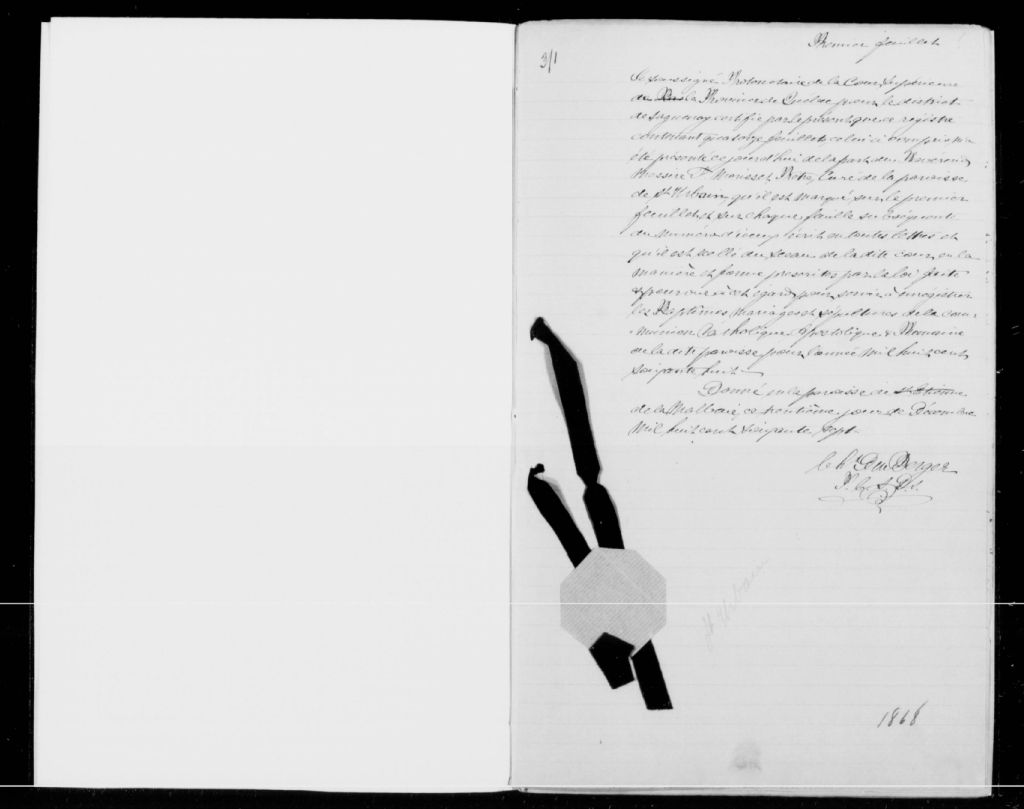 Premier feuillet
3/1
Le soussigné Protonotaire de la Cour Supérieure
de la Province de Québec pour le district
de Saguenay certifie par le présent que ce registre
contenant quatorze feuillets celui-ci compris
été présenté ce jourd'hui de la part du Révérend
Messire Ptre, Curé de la paroisse
de St Urbain, qu'il est marqué sur le premier
feuillet et sur chaque feuille subséquente
du numéro d'iceux écrit en toutes lettres et
qu'il est scellé du sceau de la dite cour, en la
manière et forme prescrites par la loi faite
& pourvue à cet égard, pour servir à enrégistrer
les Baptêmes, Mariages et sépultures de la com-
munion Catholique Apostolique & Romaine
de la dite paroisse pour l'année Mil huit cent
soixante huit.
Donné en la paroisse de St Etienne
de la Malbaie, ce trentième jour de Décembre
Mil huit cent soixante sept.
Chs Du Berger
P. C. S. D. S.
St Urbain
1868